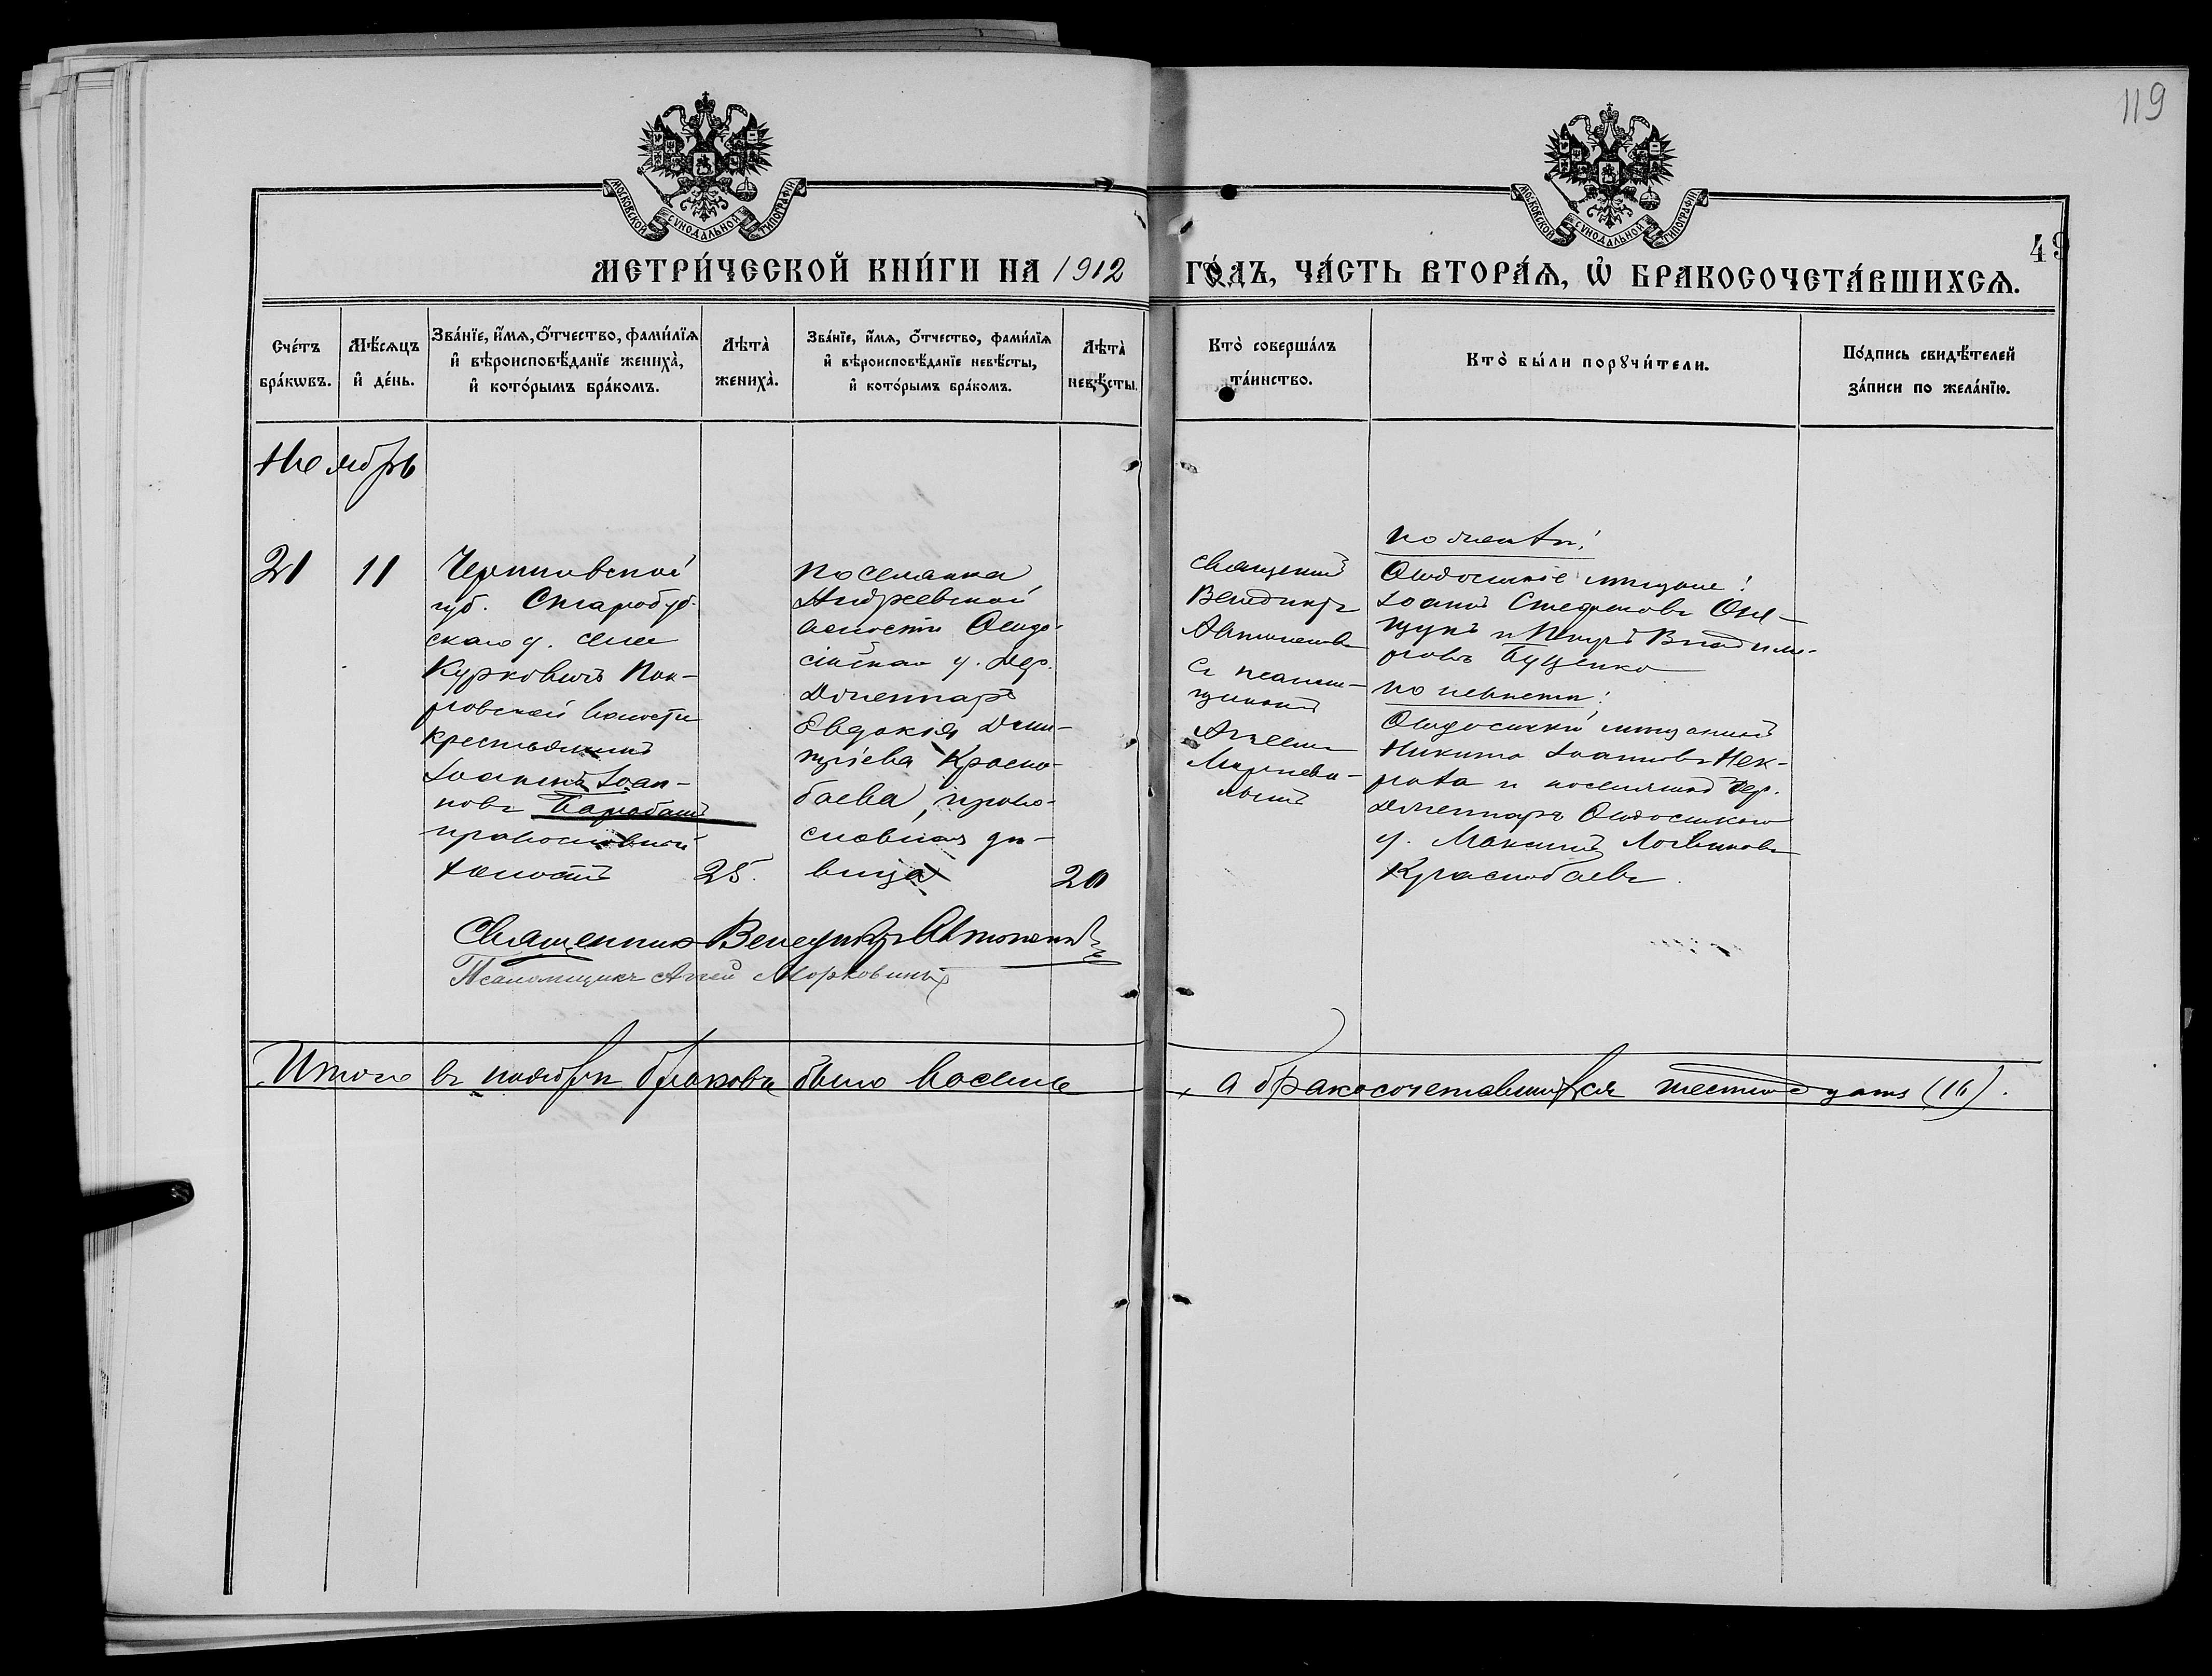 119
МОСКОВСКОЙ СѴНОДАЛЬНОЙ ТИПОГРАФІИ
МОСКОВСКОЙ СѴНОДАЛЬНОЙ ТИПОГРАФІИ
49
МЕТРИ́ЧЕСКОЙ КНИ́ГИ НА 1912 ГО́ДЪ, ЧА́СТЬ ВТОРА́Ѧ, Ѡ БРАКОСОЧЕТА́ВШИХСѦ.
Сче́тъ
бра́кѡвъ.
Мѣ́сѧцъ
и҆ де́нь.
Зва́нїе, и҆́мѧ, ѻ҆́тчество, фами́лїѧ
и҆ вѣроисповѣ́данїе жениха̀,
и҆ кото́рымъ бра́комъ.
Лѣта̀
жениха̀.
Зва́нїе, и҆́мѧ, ѻ҆́тчество, фами́лїѧ
и҆ вѣроисповѣ́данїе невѣ́сты,
и҆ кото́рымъ бра́комъ.
Лѣта̀
невѣ́сты.
Кто̀ соверша́лъ
та́инство.
Кто̀ бы́ли порꙋчи́тели.
По́дпись свидѣ́телей
за́писи по жела́нїю.
Ноябрь
21
11
Черниговской
губ. Стародуб-
скаго у. села
Курковичъ Пок-
ровской волости
крестьянинъ
Іоаннъ Іоан-
новъ Барабашъ
православный
холостъ
25.
поселянка
Андреевской
волости Ѳеодо-
сійскаго у. дер.
Евдокія Дими-
тріева Красно-
баева, право-
славная дѣ-
вица
20
Священникъ
Венедиктъ
Автономовъ
съ псалом-
щикомъ
Аггеемъ
по женихѣ:
Ѳеодосійскіе мѣщане:
Іоаннъ Стефановъ Они-
щукъ и Петръ Владими-
ровъ Буценко
по невѣстѣ:
Ѳеодосійскій мѣщанинъ
Никита Іоанновъ Нек-
раса и поселянинъ дер.
Ѳеодосійскаго
у. Максимъ Логвиновъ
Краснобаевъ.
Священникъ Венедиктъ Автономовъ
Псаломщикъ Аггей Морковинъ
Итого въ ноябрѣ браковъ было восемь, а бракосочетавшихся шестнадцать (16).